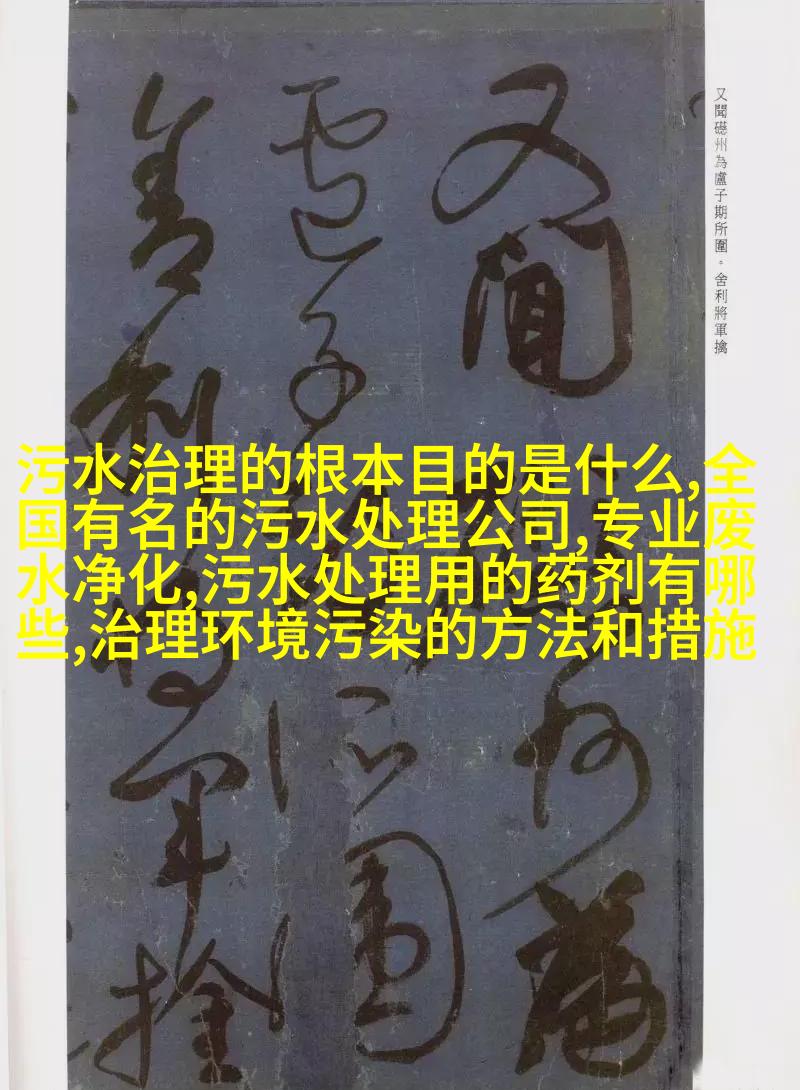 又聞礠州為盧子期所圍。舍利將軍擒
又聞礠州為
盧子期所圍
舍利將軍擒
污水治理的根本目的是什么,全
国有名的污水处理公司,专业废
水净化,污水处理用的药剂有哪
些,治理环境污染的方法和措施